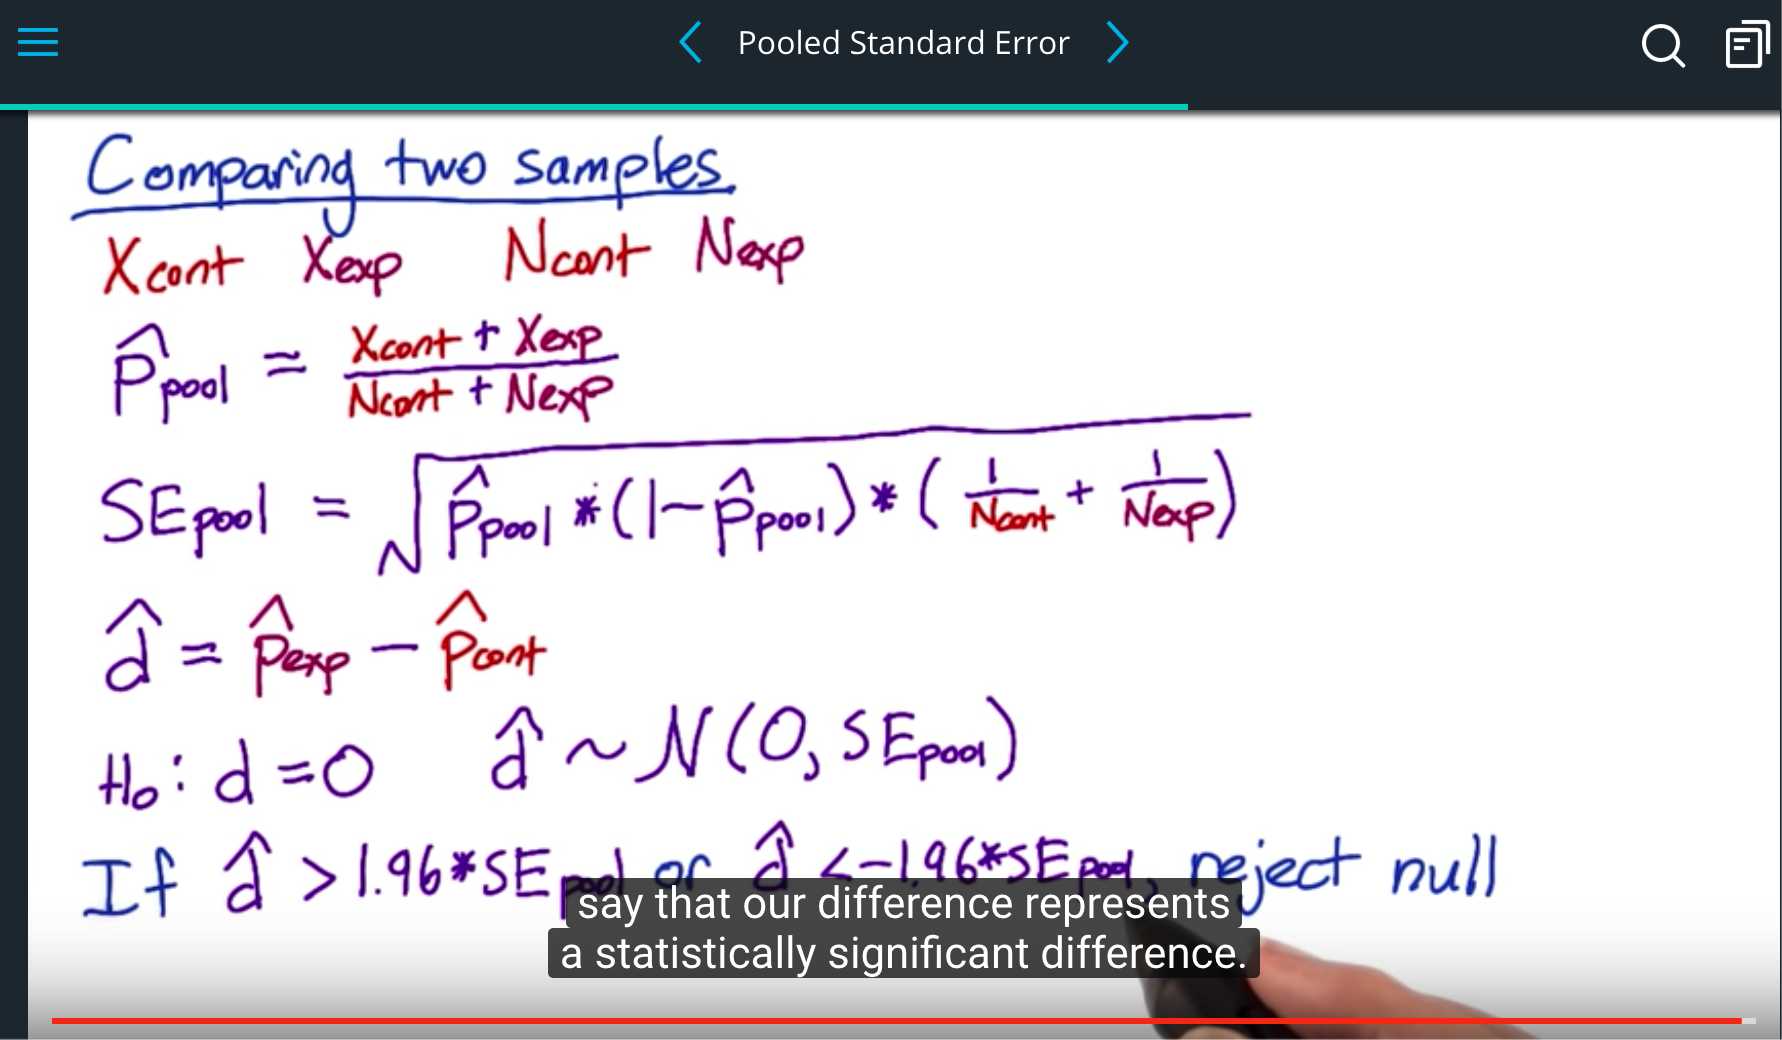 Pooled Standard Error
Comparing two samples
Xcont Xexp Ncont Nexp
p̂pool = Xcont + Xexp / Ncont + Nexp
SEpool = √p̂pool * (1-p̂pool) * (1/Ncont + 1/Nexp)
d̂ = p̂exp - p̂cont
H₀: d = 0 d̂ ~ N(0, SEpool)
If d̂ > 1.96*SEpool or d̂ < -1.96*SEpool, reject null
say that our difference represents
a statistically significant difference.